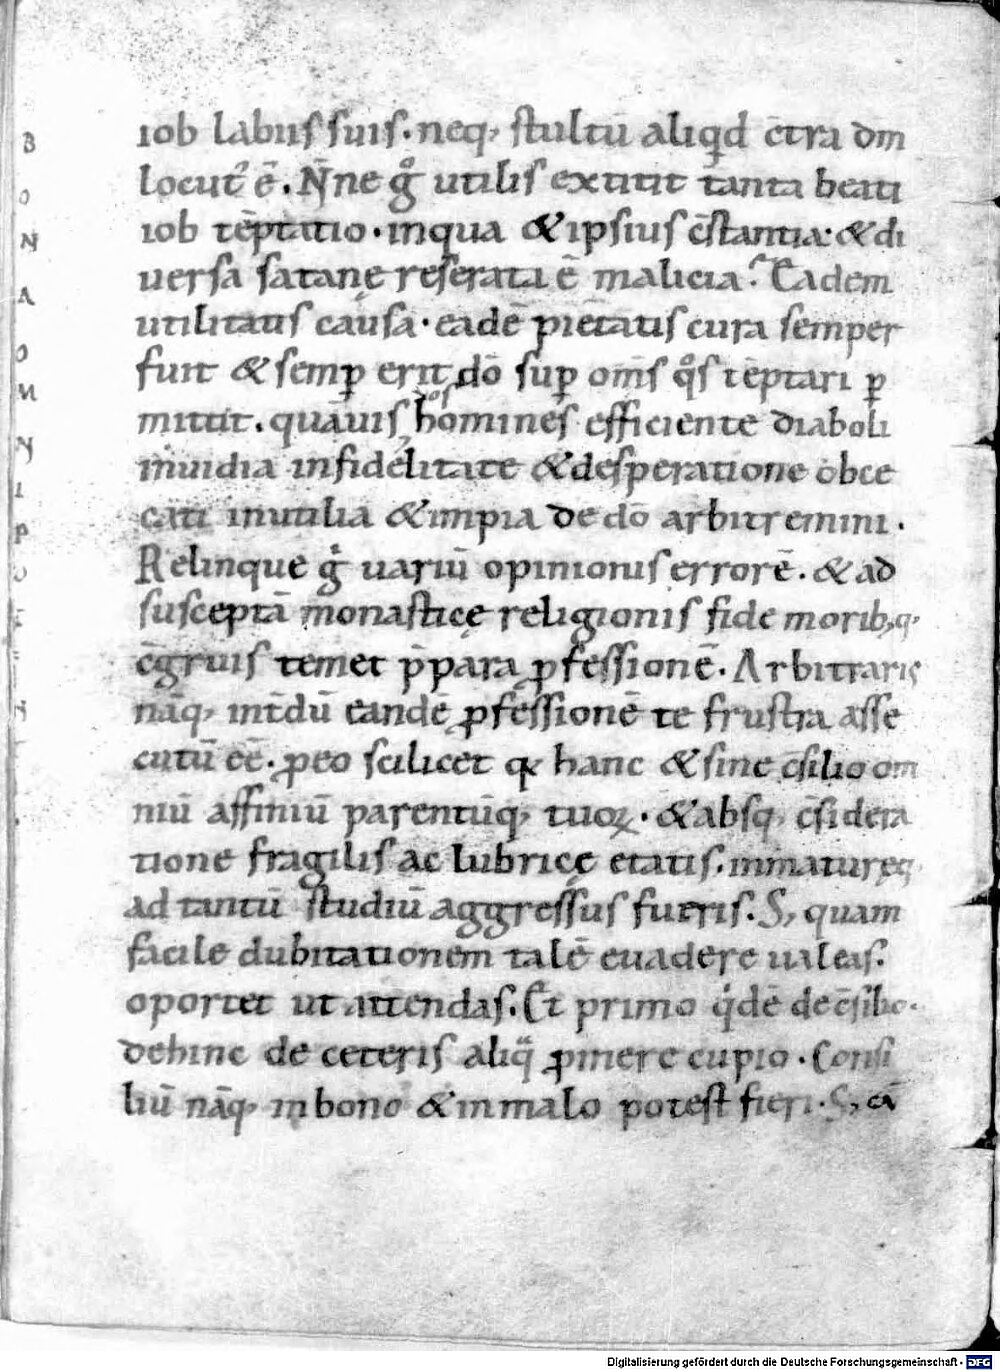 iob labiis suis. neq; stultū aliqd c̄tra dm̄
locutꝰ ē. N̄ne gͦ utilis extitit tanta beati
iob tēptatio. inqua & ipsius c̄stantia: & di
uersa satanę reserata ē malicia? Eadem
utilitatis causa. eadē pietatis cura semper
fuit & semꝑ erit dō suꝑ om̄s qͦs tēptari ꝑ
mittit. quāuis hos homines efficiente diaboli
inuidia infidelitate & desperatione obce
cati inutilia & impia de dō arbitremini.
Relinque gͦ uariū opinionis errorē. & ad
susceptā monasticę religionis fidē morib; q;
c̄gruis temet p̄para ꝓfessionē. Arbitraris
nāq; int̄dū eandē ꝓfessionē te frustra asse
cutū eē. ꝓeo scilicet qꝛ hanc & sine c̄silio om
niū affiniū parentūq; tuoꝝ. & absq; c̄sidera
tione fragilis ac lubricę etatis. inmatureq;
ad tantū studiū aggressus fueris. S; quam
facile dubitationem talē euadere ualeas.
oportet ut attendas. Et primo qͥdē de c̄silio.
dehinc de ceteris aliqͣ ꝓmere cupio. Consi
liū nāq; in bono & in malo potest fieri. S; cū
B
O
N
A
O
M
N
I
P
O
E
N
Digitalisierung gefördert durch die Deutsche Forschungsgemeinschaft - DFG